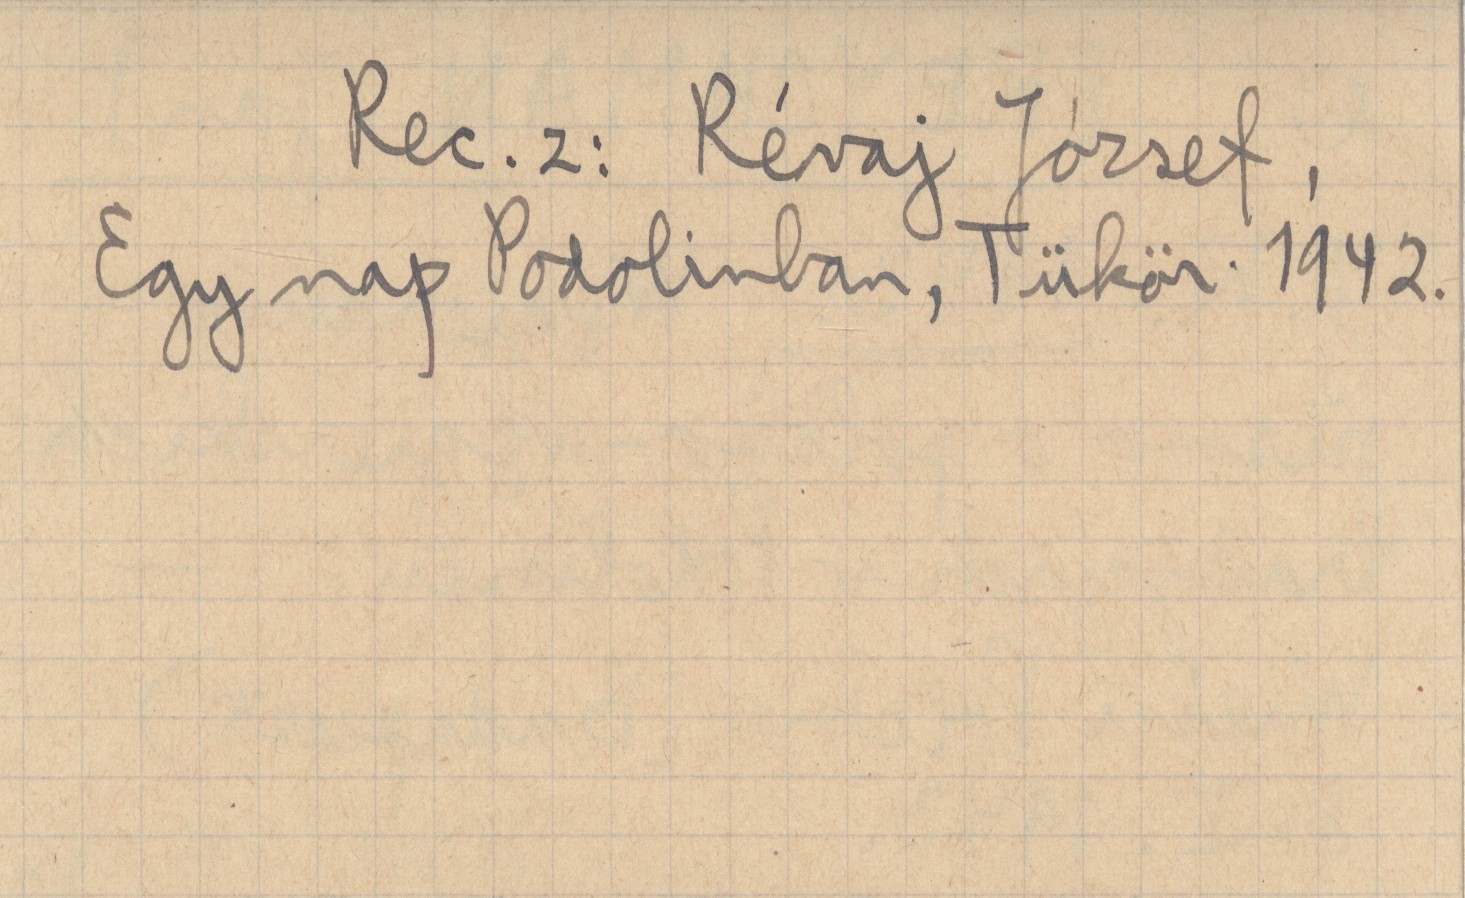 Rec. z: Révaj József,
Egy nap Podolinban, Tükör. 1942.